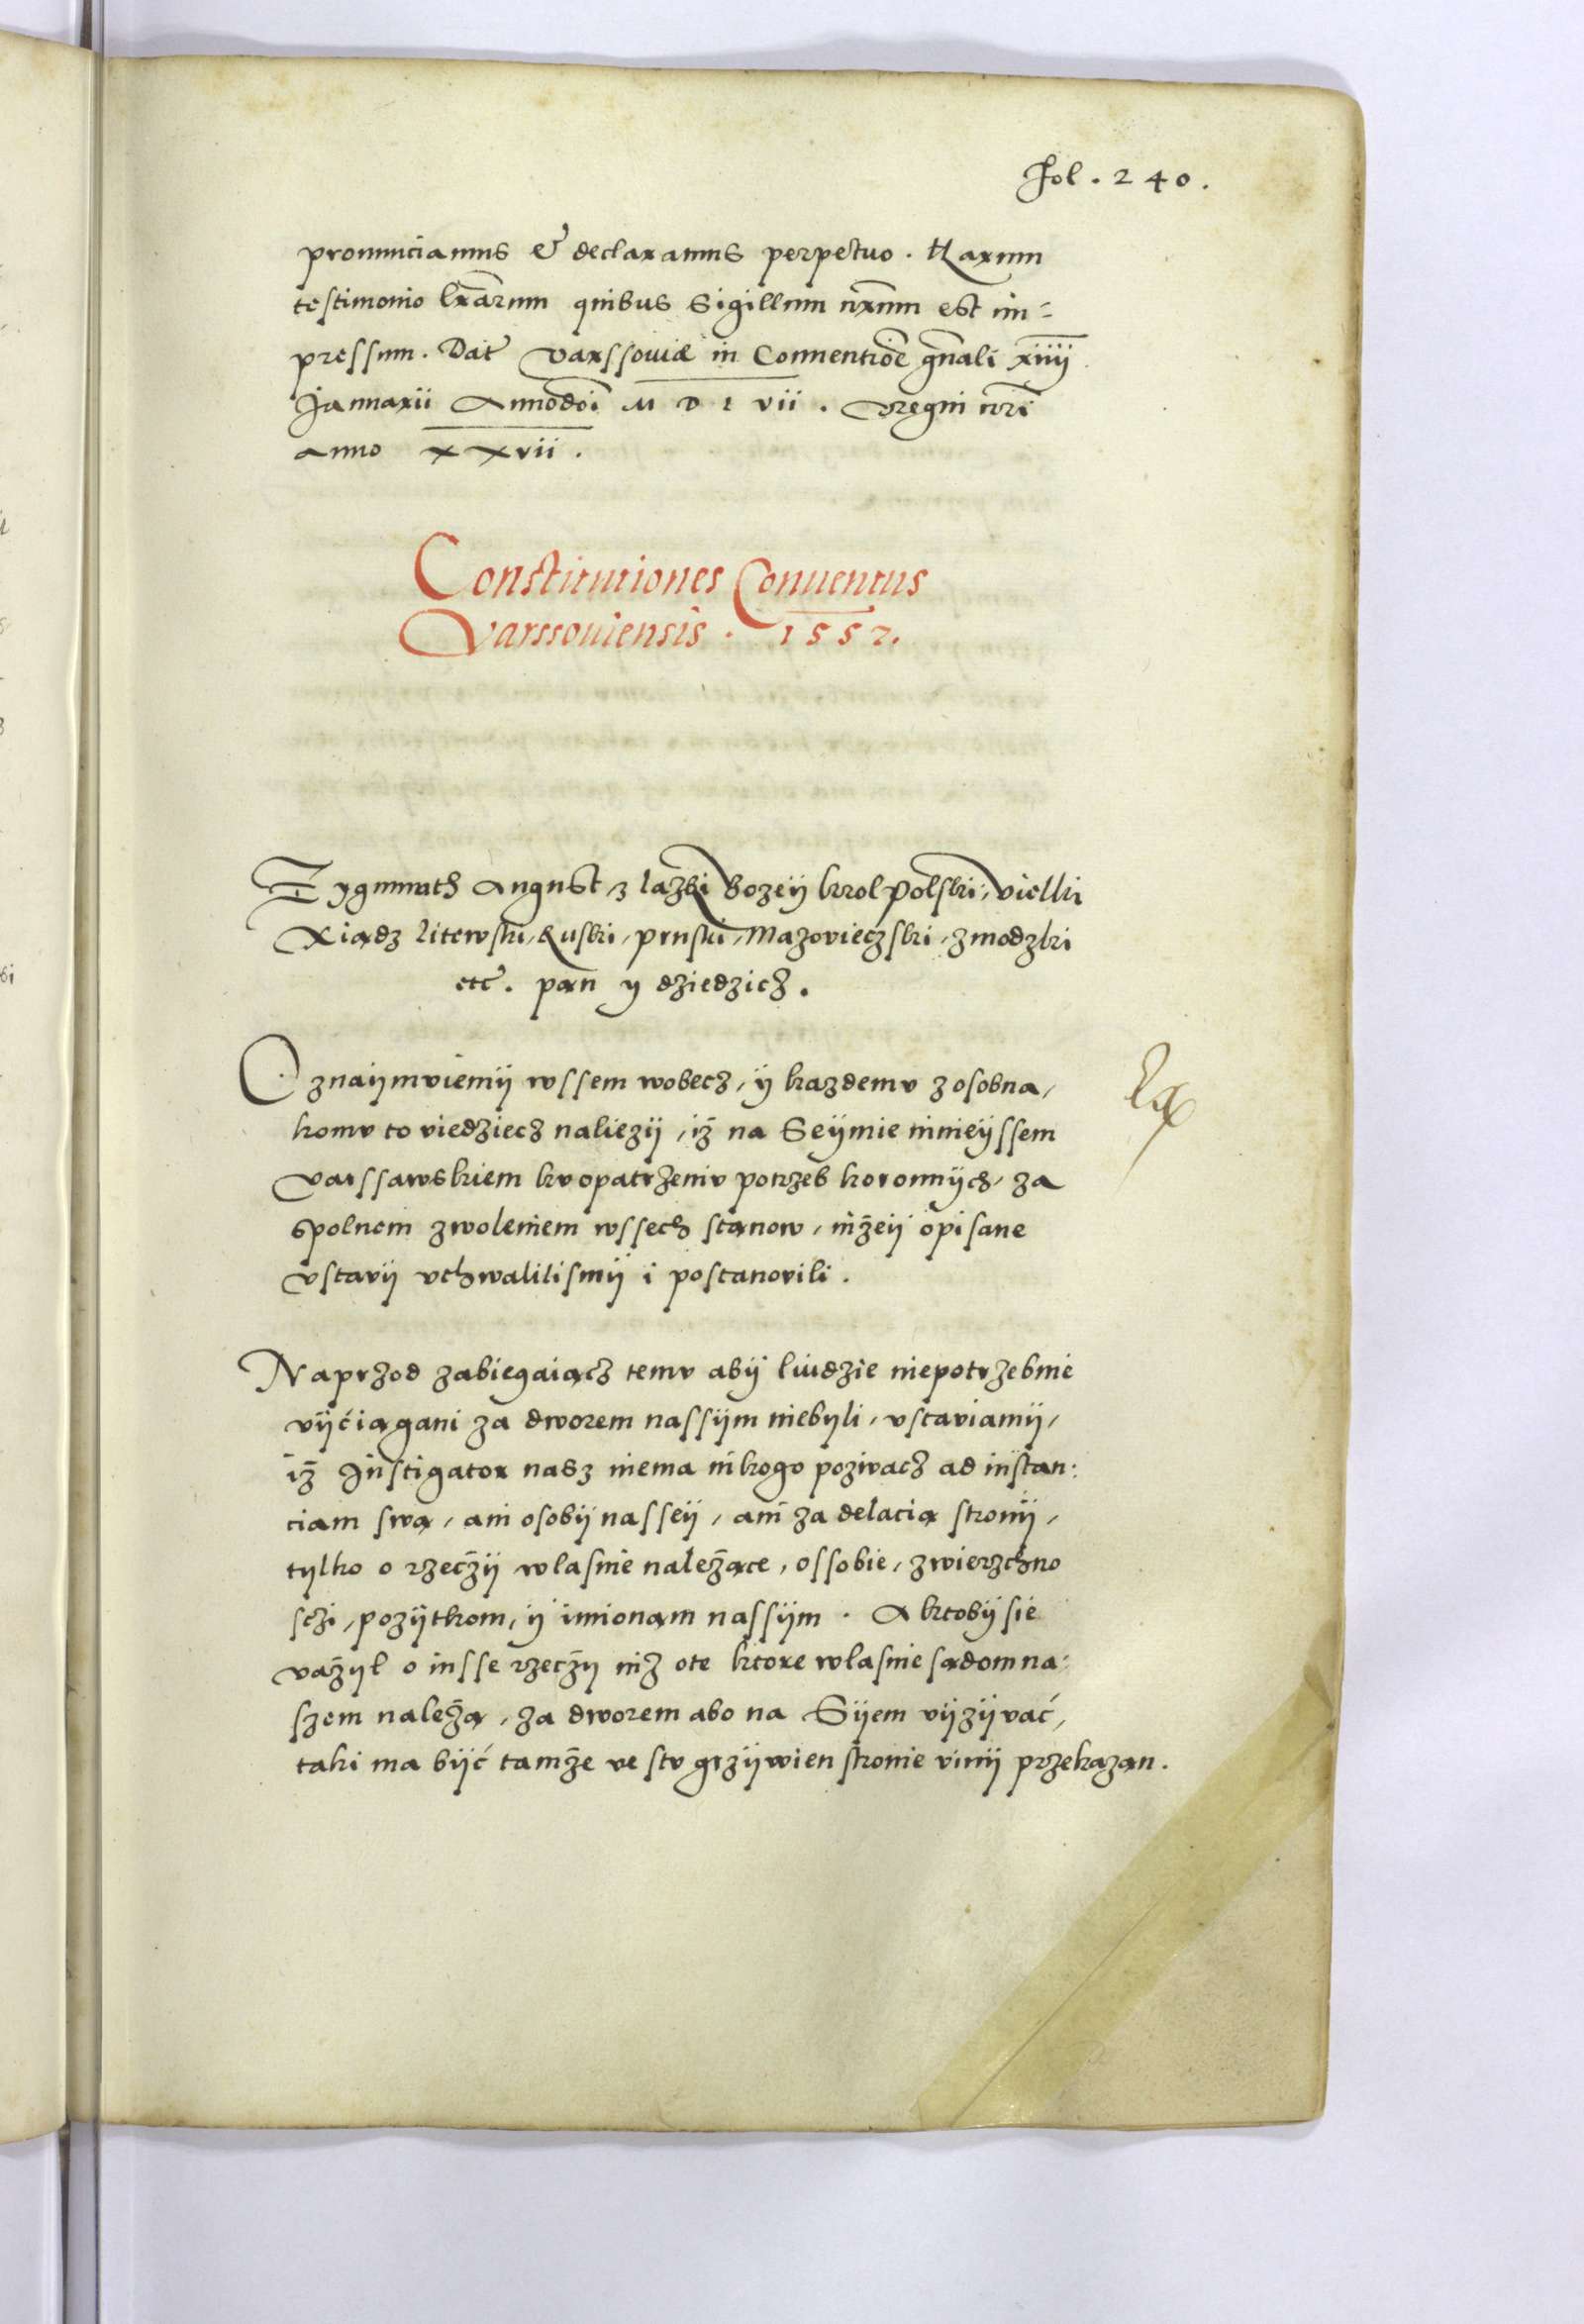 Fol. 240.
pronunciamus & declaramus perpetuo. Harum
testimonio lrarum quibus Sigillum nrum est im-
pressum. Dat Varssoviæ in Conventioe gnali xiiij
Januarii Annodoi M D L vii. Vregni nri
anno xxvii.
Constitutiones Conuentus
Varssouiensis. 1557.
Zygmunth August, z lazki Bozeÿ krol Polski, vielki
Xiądz litewski, Ruski, pruski, Mazovieczski, zmodzki
etc. pan y dziedzich.
Oznaÿmviemÿ wssem wobecz, ÿ kazdemv zosobna,
komv to viedziecz naliezÿ, iż na Seÿmie ninieÿssem
Varssawskiem kvopatrzeniv potrzeb koronnÿch, za
spolnem zwoleniem wssech stanow, niżeÿ opisane
vstavÿ vchwalilismÿ i postanovili.
Naprzod zabiegaiącz temv abÿ liudzie niepotrzebnie
vÿciągani za dworem nassÿm niebÿli, vstaviamÿ,
iż Instigator nasz niema nikogo pozivacz ad instan:
ciam swą, ani osobÿ nasseÿ, ani za delacią stronÿ,
tylko o rzeczÿ wlasnie należące, ossobie, zwierzchno
sczi, pozÿtkom, ÿ imionam nassÿm. A ktobÿ sie
važÿł o insse rzeczÿ niż ote ktore wlasnie sądom na:
szem należą, za dworem abo na Sÿem vÿzÿvać,
taki ma bÿć tamże ve stv grzÿwien stronie vinÿ przekazan.